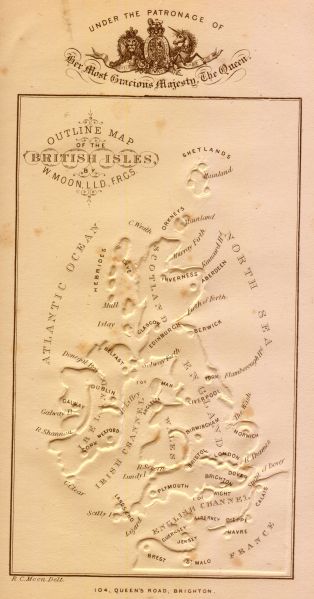 UNDER THE PATRONAGE OF
Her Most Gracious Majesty, The Queen.
OUTLINE MAP
OF THE
BRITISH ISLES,
BY
W. MOON, L.L.D., F.R.G.S.
SHETLANDS
Mainland
ORKNEYS
Mainland
C. Wrath
ATLANTIC OCEAN
NORTH SEA
HEBRIDES
SKYE
SCOTLAND
Murray Firth
Kinnaird Hd.
INVERNESS
ABERDEEN
Mull
Firth of Forth
Islay
GLASGOW
EDINBURGH
BERWICK
BELFAST
Donegal Bay
Solway Firth
I OF MAN
YORK
Flamborough Hd.
DUBLIN
ENGLAND
LIVERPOOL
GALWAY
Galway B.
IRELAND
R. Liffey
ANGLESEA
The Wash
R. Shannon
CORK
WEXFORD
IRISH CHANNEL
WALES
BIRMINGHAM
NORWICH
C. Clear
R. Severn
Lundy I.
BRISTOL
LONDON
R. Thames
DOVER
Strait of Dover
BRIGHTON
PLYMOUTH
I OF WIGHT
CALAIS
LANDS END
Scilly Is.
Lizard
ENGLISH CHANNEL
ALDERNEY
DIEPPE
GUERNSEY
HAVRE
JERSEY
FRANCE
BREST
ST MALO
R. C. Moon. Delt.
104, QUEEN'S ROAD, BRIGHTON.